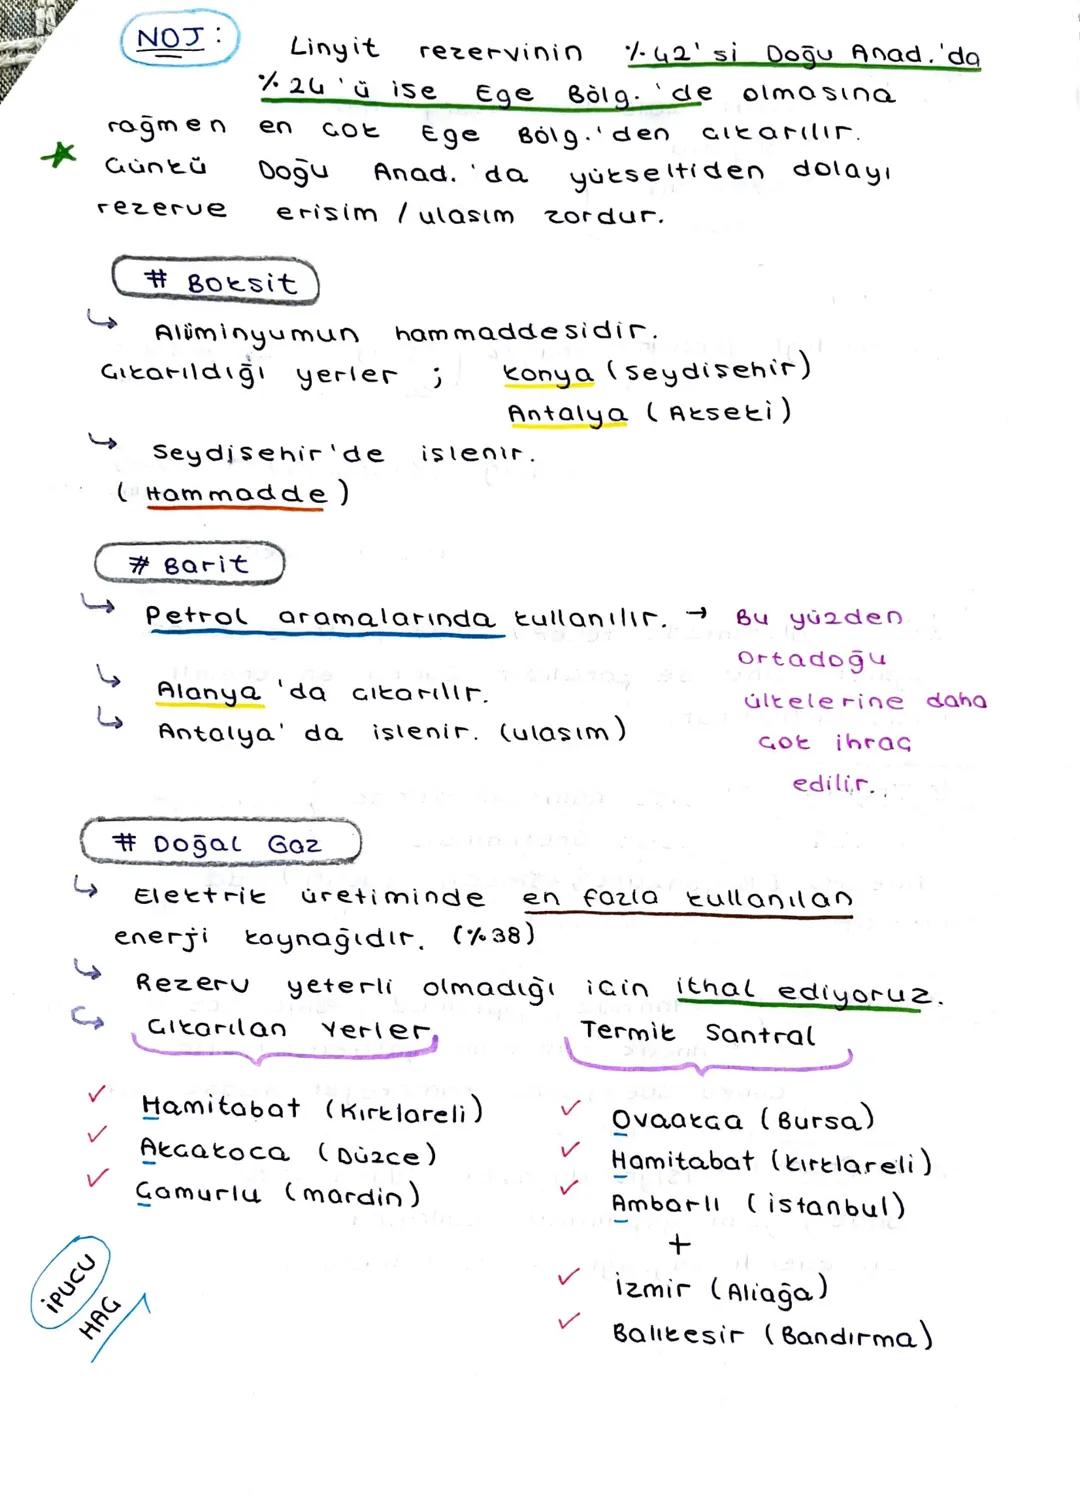 NOT :
Linyit rezervinin %42'si Doğu Anad.'da
%24'ü ise Ege Bölg.'de olmasına
rağmen en çok Ege Bölg.'den çıkarılır.
Çünkü Doğu Anad.'da yükseltiden dolayı
rezerve erişim / ulaşım zordur.
# Boksit
↳ Alüminyumun hammaddesidir.
Çıkarıldığı yerler ; Konya (Seydişehir)
Antalya (Akseki)
↳ Seydişehir'de işlenir.
(Hammadde)
# Barit
↳ Petrol aramalarında kullanılır. → Bu yüzden
Ortadoğu
ülkelerine daha
çok ihraç
edilir.
↳ Alanya'da çıkarılır.
↳ Antalya'da işlenir. (ulaşım)
# Doğal Gaz
↳ Elektrik üretiminde en fazla kullanılan
enerji kaynağıdır. (%38)
↳ Rezerv yeterli olmadığı için ithal ediyoruz.
↳ Çıkarılan Yerler
✓ Hamitabat (Kırklareli)
✓ Akçakoca (Düzce)
✓ Çamurlu (mardin)
İPUCU
HAÇ
Termik Santral
✓ Ovaakça (Bursa)
✓ Hamitabat (Kırklareli)
✓ Ambarlı (istanbul)
+
✓ izmir (Aliağa)
✓ Balıkesir (Bandırma)